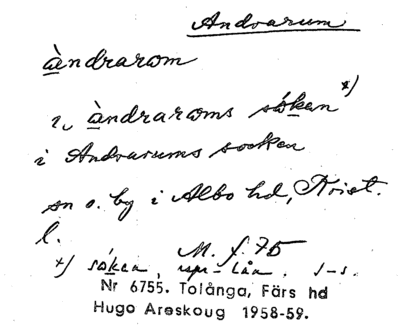 Andrarum
àndrarom
i, àndraroms sóken *)
i Andrarums socken
sn o. by i Albo hd, Krist.
l.
M. f. 75
*) sóken, rspr-lån. s-s.
Nr 6755. Tolånga, Färs hd
Hugo Areskoug 1958-59.